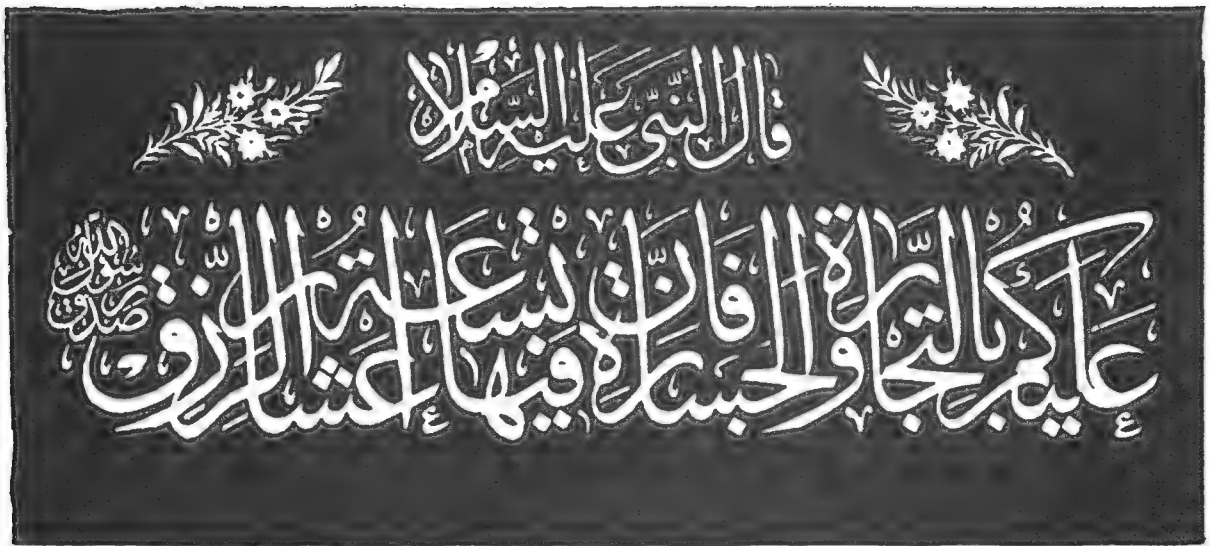 قَالَ النَّبِيّ عَلَيْهِ السَّلَام
عَلَيْكُمْ بِالتِّجَارَةِ وَالْجَسَارَةِ فَإِنَّ فِيهَا تِسْعَةُ اَعْشَارِ الرِّزْقِ
صدق رسول الله